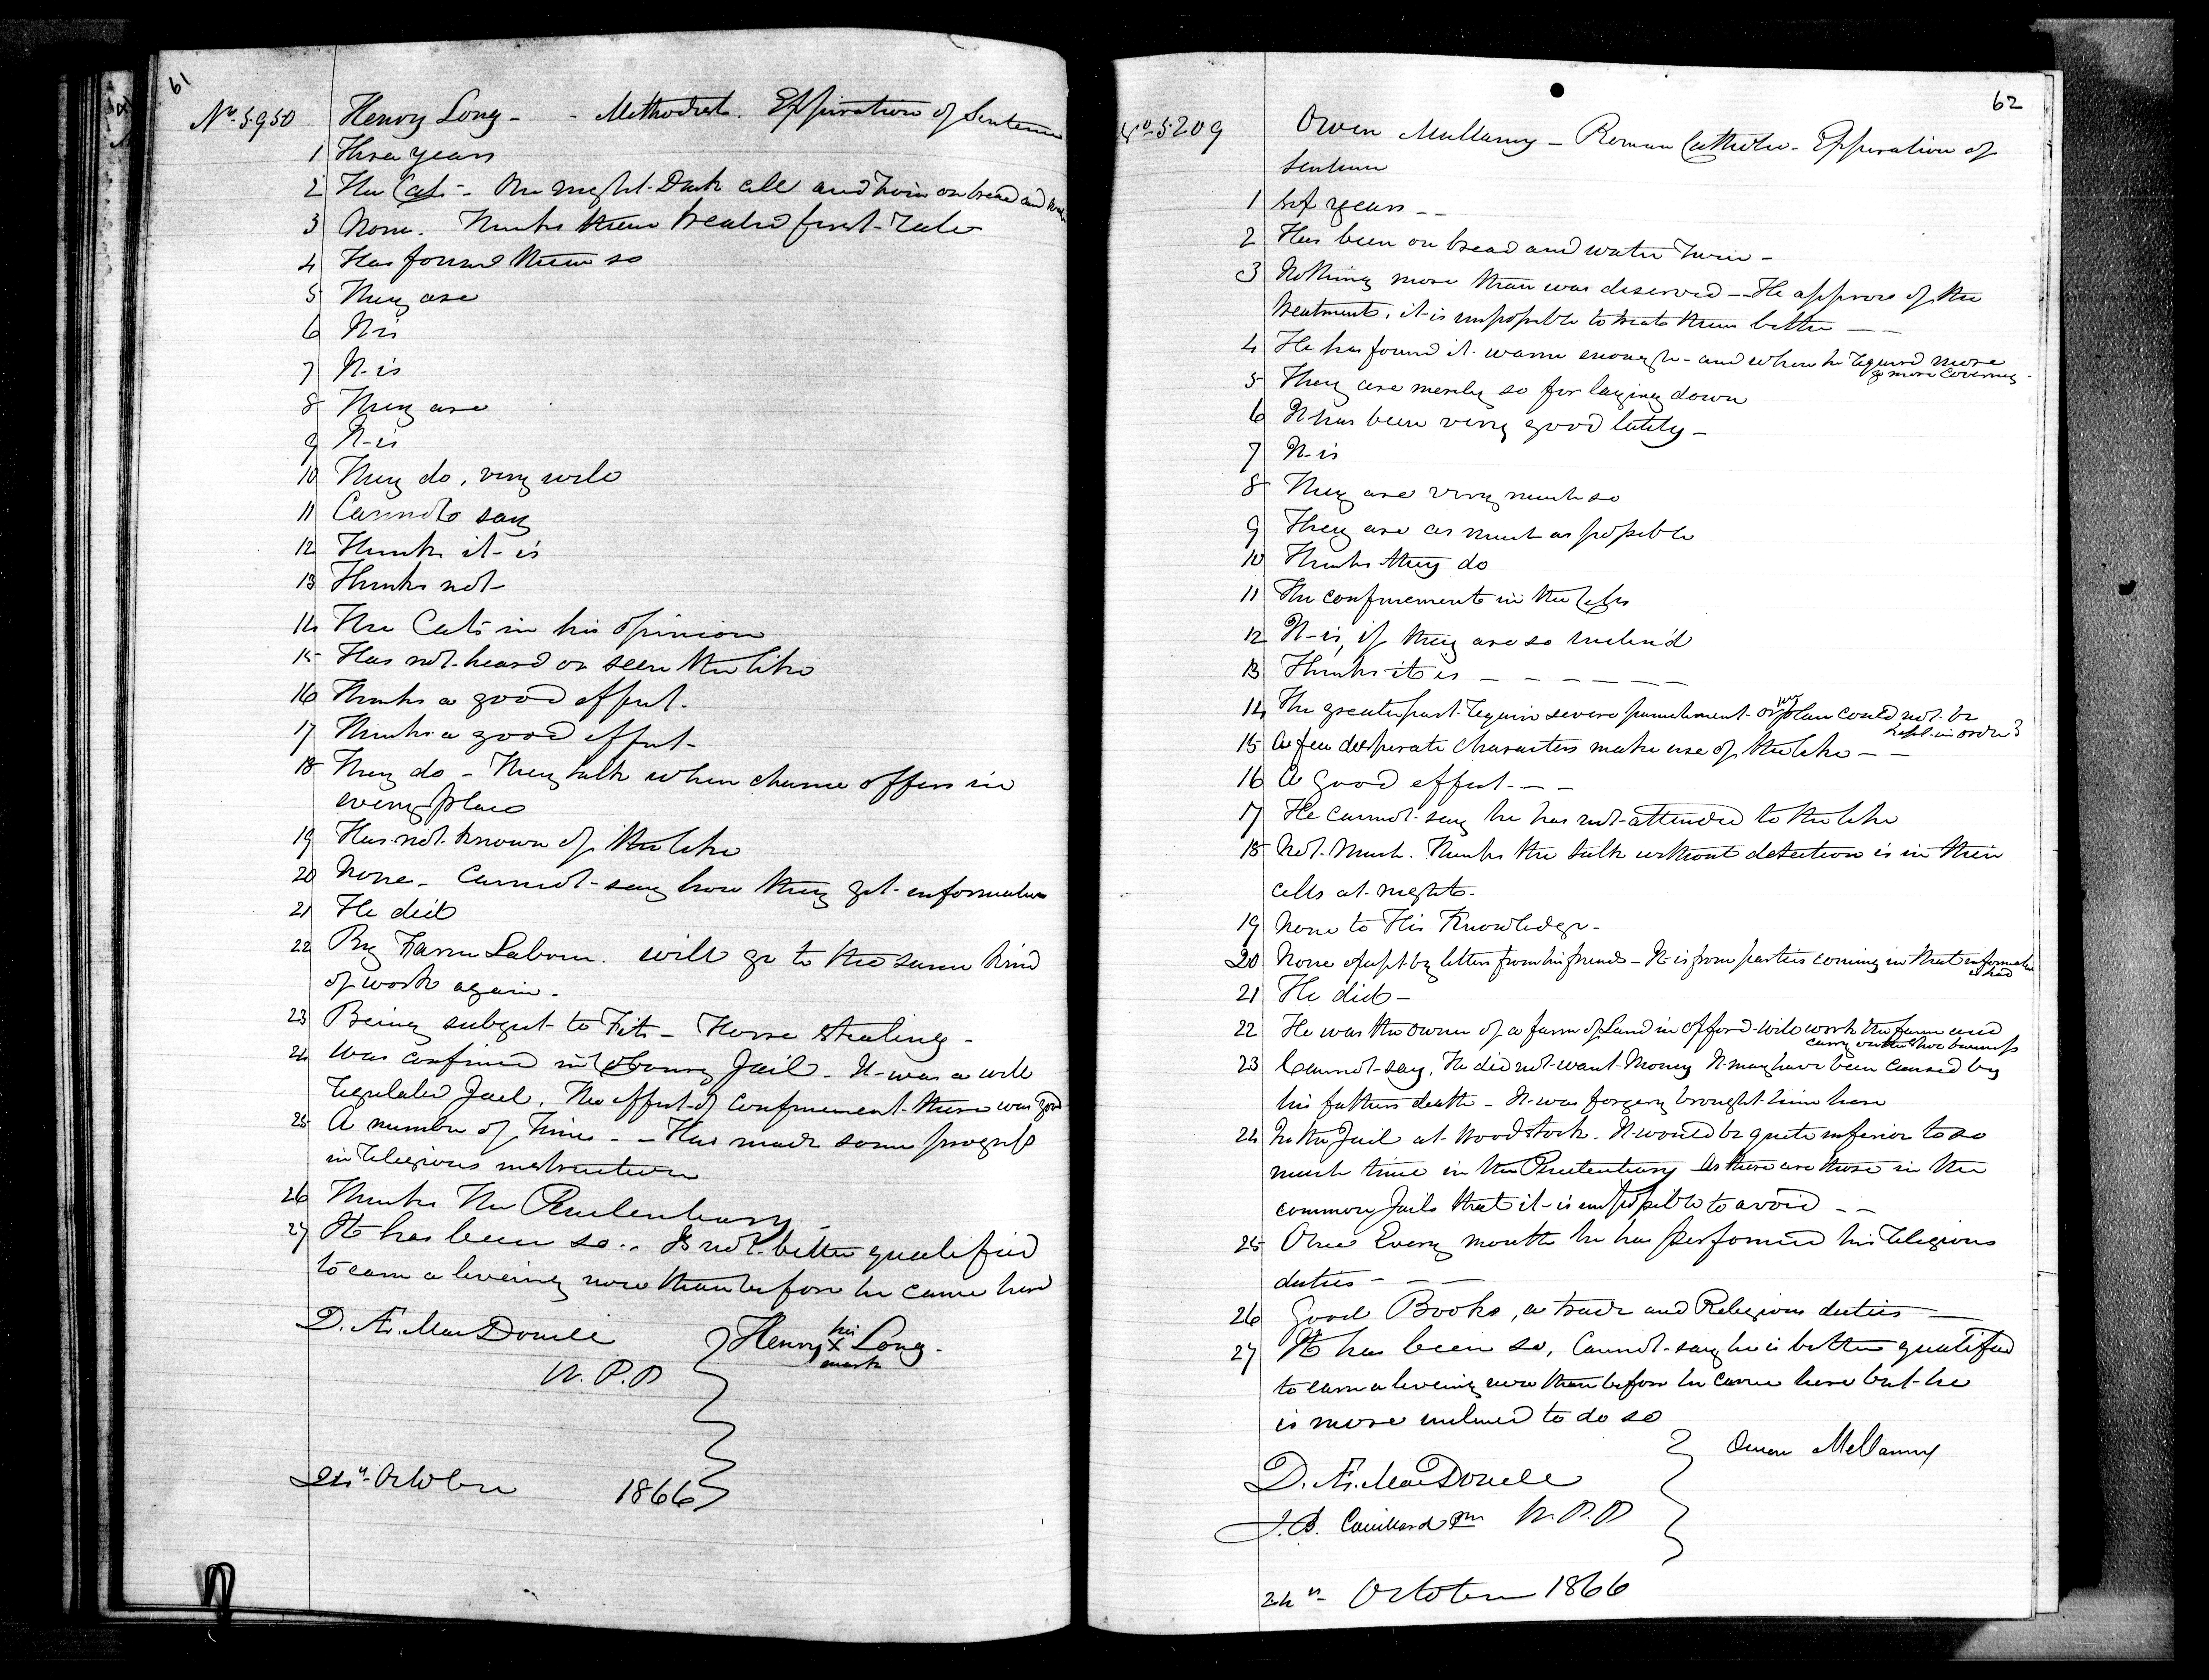 61
No. 5950 Henry Long - - Methodist. Expiration of Sentence
1 Three years
2 The Cats - One night Dark cell and twice on bread and water
3 None. Thinks them treated first-rate
4 Has found them so
5 They are
6 It is
7 It is
8 They are
9 It is
10 They do, very well
11 Cannot say
12 Thinks it is
13 Thinks not
14 The Cats in his opinion
15 Has not heard or seen the like
16 Thinks a good effect.
17 Thinks a good effect -
18 They do - They talk when chance offers in
every place
19 Has not known of the like
20 None - Cannot say how they get information
21 He did
22 By Farm Labour. will go to the same kind
of work again.
23 Being subject to Fits - Horse stealing -
24 Was confined in Cobourg Jail - It was a well
regulated Jail. The effect of confinement there was good
25 A number of times - - Has made some progress
in religious instruction
26 Thinks The Penitentiary -
27 It has been so .. Is not better qualified
to earn a liveing now than before he came here
D. Æ. MacDonell
W. P. P
Henry his X mark Long.
24th October 1866
62
No. 5209 Owen Mullarny - Roman Catholic - Expiration of
Sentence
1 Six years - -
2 Has been on bread and water Twice -
3 Nothing more than was deserved - He approves of the
treatment, it is impossible to treat them better - -
4 He has found it warm enough - and when he required more
got more covering -
5 They are merely so for laying down
6 It has been very good lately -
7 It is
8 They are very much so
9 They are as much as possible
10 Thinks they do
11 The confinement in the Cells
12 It is, if they are so inclin'd
13 Thinks it is - - - - - - -
14 The greater part require severe punishment or place could not be
kept in order
15 A few desperate characters make use of the like - -
16 A good effect - - -
17 He cannot say he has not attended to the like
18 Not much. Thinks the talk without detection is in their
cells at nights.
19 None to His Knowledge -
20 None except by letters from his friends - It is from parties coming in that information
is had
21 He did -
22 He was the owner of a farm of Land in Oxford - will work the farm and
carry on the business
23 Cannot say. He did not want Money It may have been caused by
his fathers death - It was forgery brought him here
24 In the Jail at Woodstock. It would be quite inferior to so
much time in the Penitentiary As there are those in the
common Jails that it is impossible to avoid - -
25 Once Every month he has performed his religious
duties - - -
26 Good Books, a trade and Religious duties -
27 It has been so, Cannot say he is better qualified
to earn a liveing now than before he came here but he
is more inclined to do so
Owen Mellarny
D. Æ. MacDonell
W. P. P
24th October 1866